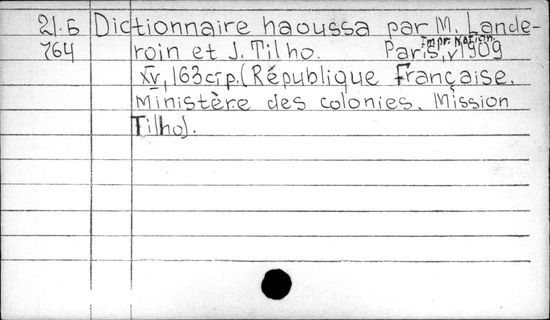 21.6 Dictionnaire haoussa par M. Lande-
764 roin et J. Tilho. Paris, Impr. Nation. 1909
XV, 163 стр. (République Française.
Ministère des colonies. Mission
Tilho).